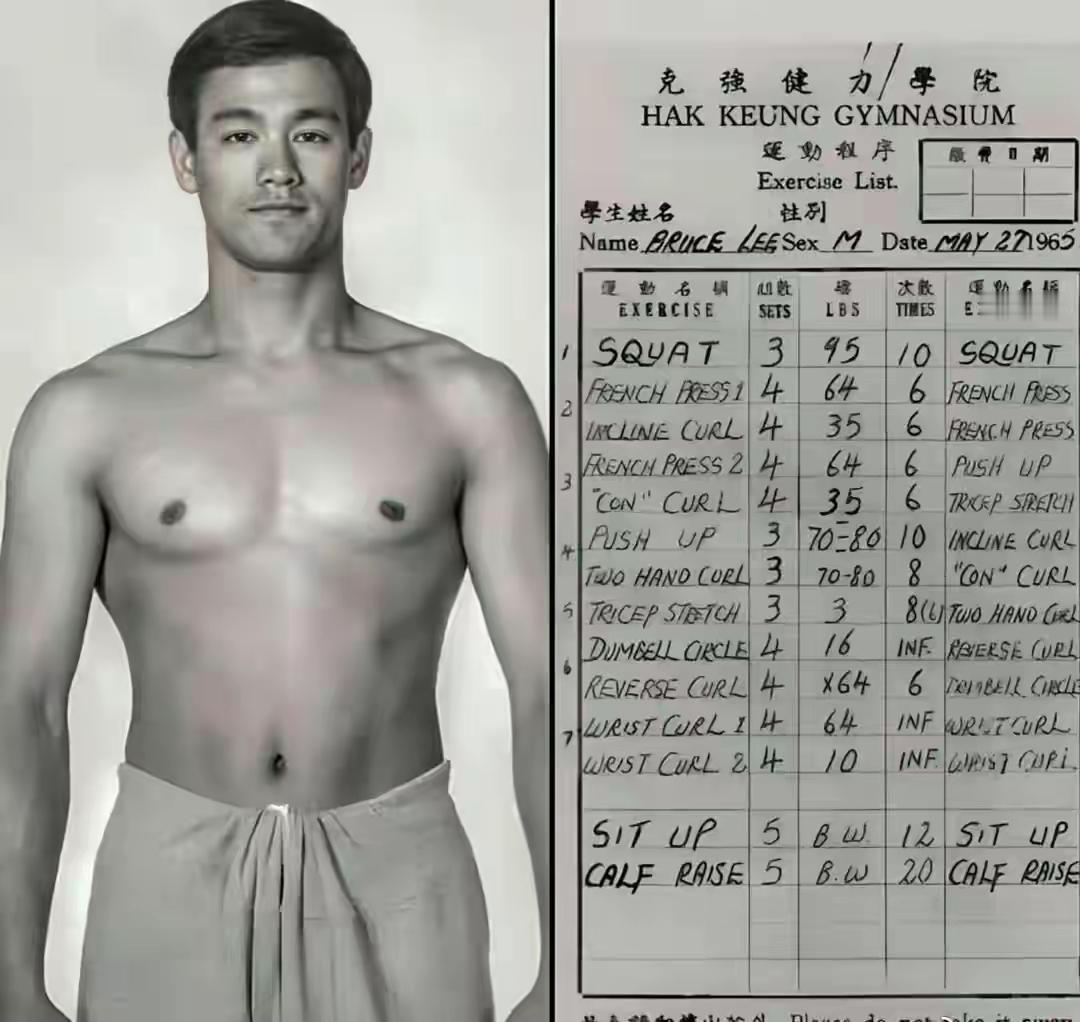 克強健力學院
HAK KEUNG GYMNASIUM
運動程序
Exercise List.
繳費日期
學生姓名 性別
Name BRUCE LEE Sex M Date MAY 27 1965
運動名稱 組數 磅 次數 運動名稱
EXERCISE SETS LBS TIMES E
1 SQUAT 3 95 10 SQUAT
2 FRENCH PRESS 1 4 64 6 FRENCH PRESS
INCLINE CURL 4 35 6 FRENCH PRESS
3 FRENCH PRESS 2 4 64 6 PUSH UP
"CON" CURL 4 35 6 TRICEP STRETCH
4 PUSH UP 3 70-80 10 INCLINE CURL
TWO HAND CURL 3 70-80 8 "CON" CURL
5 TRICEP STRETCH 3 3 8(6) TWO HAND CURL
6 DUMBELL CIRCLE 4 16 INF. REVERSE CURL
REVERSE CURL 4 X64 6 DUMBELL CIRCLE
7 WRIST CURL 1 4 64 INF WRIST CURL
WRIST CURL 2 4 10 INF. WRIST CURL
SIT UP 5 B.W. 12 SIT UP
CALF RAISE 5 B.W 20 CALF RAISE
Please do not take it away